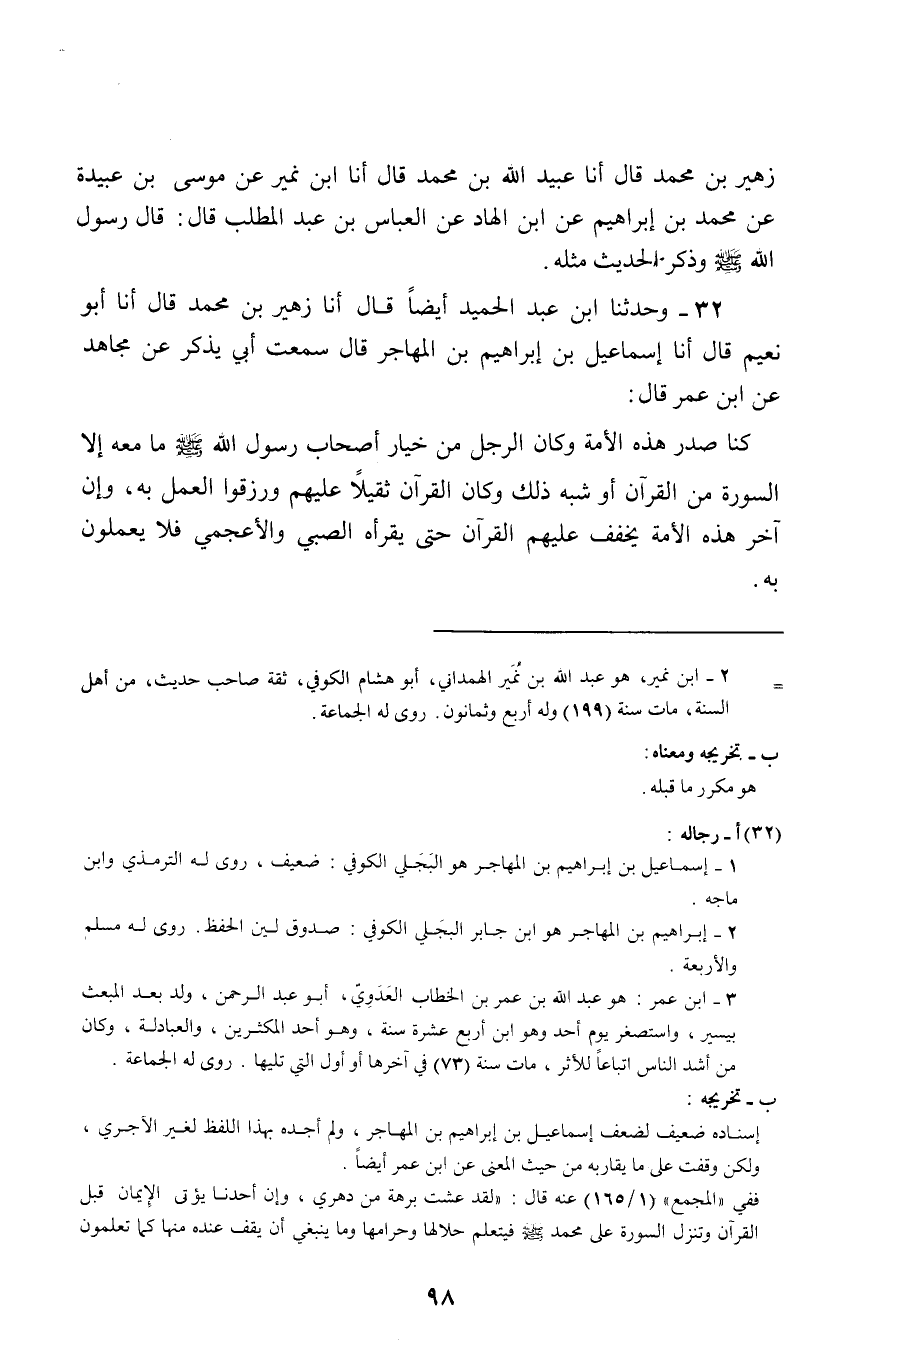 زهير بن محمد قال أنا عبيد الله بن محمد قال أنا ابن نمير عن موسى بن عبيدة
عن محمد بن إبراهيم عن ابن الهاد عن العباس بن عبد المطلب قال: قال رسول
الله ﷺ وذكر الحديث مثله.
٣٢ - وحدثنا ابن عبد الحميد أيضاً قال أنا زهير بن محمد قال أنا أبو
نعيم قال أنا إسماعيل بن إبراهيم بن المهاجر قال سمعت أبي يذكر عن مجاهد
عن ابن عمر قال:
كنا صدر هذه الأمة وكان الرجل من خيار أصحاب رسول الله ﷺ ما معه إلا
السورة من القرآن أو شبه ذلك وكان القرآن ثقيلاً عليهم ورزقوا العمل به، وإن
آخر هذه الأمة يخفف عليهم القرآن حتى يقرأه الصبي والأعجمي فلا يعملون
به.
= ٢ - ابن نمير، هو عبد الله بن نُمَير الهمداني، أبو هشام الكوفي، ثقة صاحب حديث، من أهل
السنة، مات سنة (١٩٩) وله أربع وثمانون. روى له الجماعة.
ب - تخريجه ومعناه:
هو مكرر ما قبله.
(٣٢) أ - رجاله:
١ - إسماعيل بن إبراهيم بن المهاجر هو البَجَلي الكوفي: ضعيف، روى له الترمذي وابن
ماجه.
٢ - إبراهيم بن المهاجر هو ابن جابر البجَلي الكوفي: صدوق لين الحفظ. روى له مسلم
والأربعة.
٣ - ابن عمر: هو عبد الله بن عمر بن الخطاب العَدَوِيّ، أبو عبد الرحمن، ولد بعد المبعث
بيسير، واستصغر يوم أحد وهو ابن أربع عشرة سنة، وهو أحد المكثرين، والعبادلة، وكان
من أشد الناس اتباعاً للأثر، مات سنة (٧٣) في آخرها أو أول التي تليها. روى له الجماعة.
ب - تخريجه:
إسناده ضعيف لضعف إسماعيل بن إبراهيم بن المهاجر، ولم أجده بهذا اللفظ لغير الآجري،
ولكن وقفت على ما يقاربه من حيث المعنى عن ابن عمر أيضاً.
ففي «المجمع» (١/١٦٥) عنه قال: «لقد عشت برهة من دهري، وإن أحدنا يؤتى الإيمان قبل
القرآن وتنزل السورة على محمد ﷺ فيتعلم حلالها وحرامها وما ينبغي أن يقف عنده منها كما تعلمون
٩٨